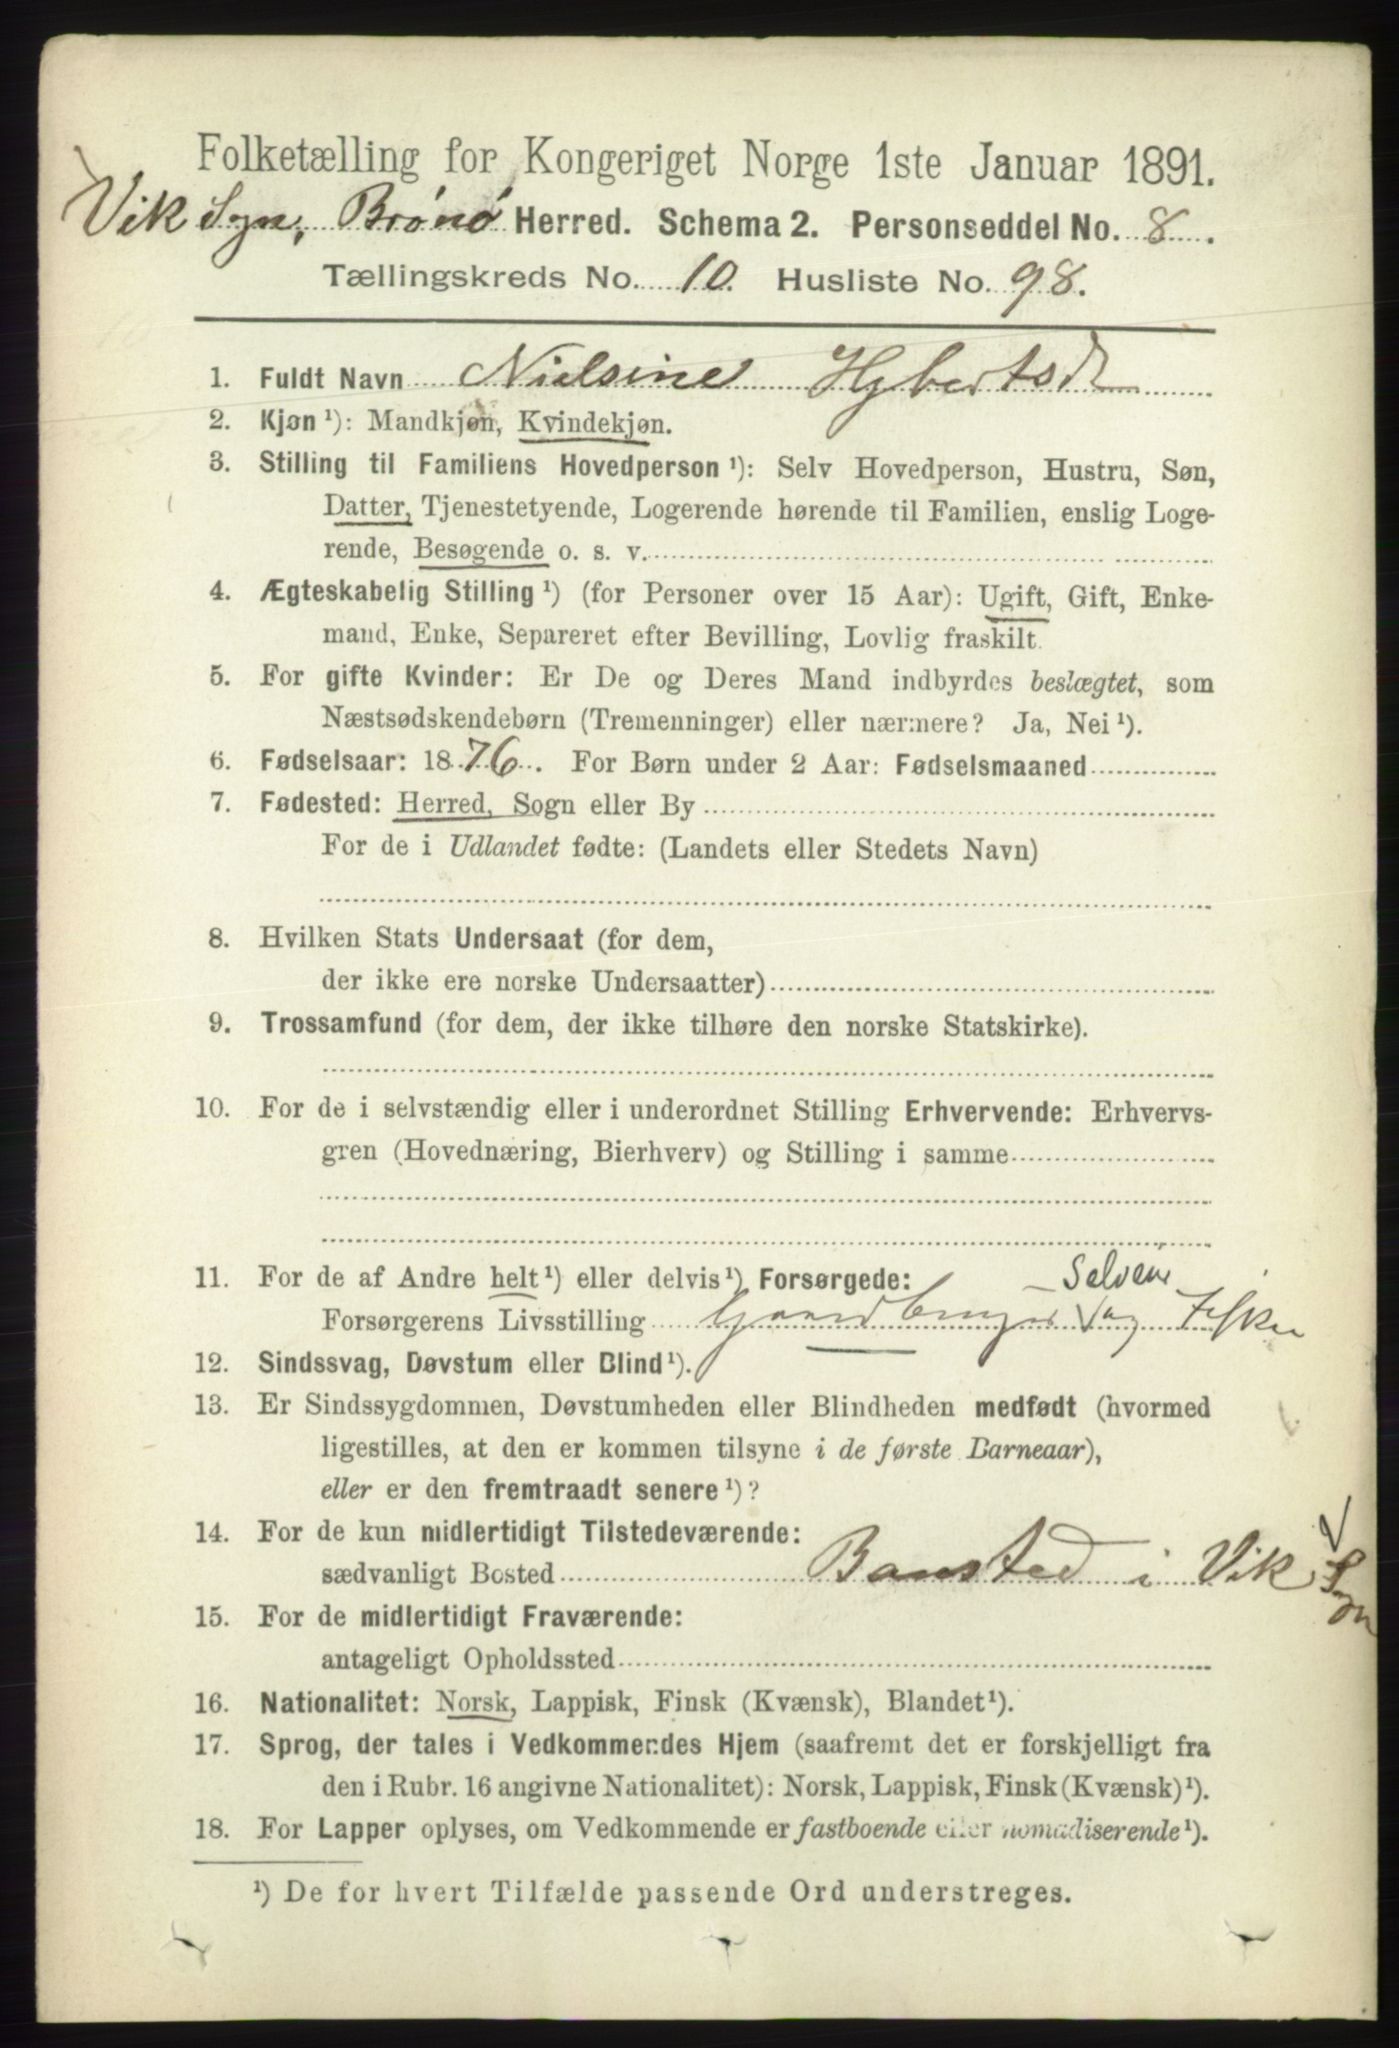 Folketælling for Kongeriget Norge 1ste Januar 1891.
Vik Sgn, Brønø Herred. Schema 2. Personseddel No. 8.
Tællingskreds No. 10. Husliste No. 98.
1. Fuldt Navn Nielsine Hjbertsd
2. Kjøn ¹): Mandkjøn, Kvindekjøn.
3. Stilling til Familiens Hovedperson ¹): Selv Hovedperson, Hustru, Søn,
Datter, Tjenestetyende, Logerende hørende til Familien, enslig Loge-
rende, Besøgende o. s. v.
4. Ægteskabelig Stilling ¹) (for Personer over 15 Aar): Ugift, Gift, Enke-
mand, Enke, Separeret efter Bevilling, Lovlig fraskilt.
5. For gifte Kvinder: Er De og Deres Mand indbyrdes beslægtet, som
Næstsødskendebørn (Tremenninger) eller nærmere? Ja, Nei ¹).
6. Fødselsaar: 1876. For Børn under 2 Aar: Fødselsmaaned
7. Fødested: Herred, Sogn eller By
For de i Udlandet fødte: (Landets eller Stedets Navn)
8. Hvilken Stats Undersaat (for dem,
der ikke ere norske Undersaatter)
9. Trossamfund (for dem, der ikke tilhøre den norske Statskirke).
10. For de i selvstændig eller i underordnet Stilling Erhvervende: Erhvervs-
gren (Hovednæring, Bierhverv) og Stilling i samme
11. For de af Andre helt ¹) eller delvis ¹) Forsørgede: Selveier
Forsørgerens Livsstilling Gaardbruger og Fisker
12. Sindssvag, Døvstum eller Blind ¹).
13. Er Sindssygdommen, Døvstumheden eller Blindheden medfødt (hvormed
ligestilles, at den er kommen tilsyne i de første Barneaar),
eller er den fremtraadt senere ¹)?
14. For de kun midlertidigt Tilstedeværende:
sædvanligt Bosted Bansted i Vik Sgn
15. For de midlertidigt Fraværende:
antageligt Opholdssted
16. Nationalitet: Norsk, Lappisk, Finsk (Kvænsk), Blandet ¹).
17. Sprog, der tales i Vedkommendes Hjem (saafremt det er forskjelligt fra
den i Rubr. 16 angivne Nationalitet): Norsk, Lappisk, Finsk (Kvænsk) ¹).
18. For Lapper oplyses, om Vedkommende er fastboende eller nomadiserende ¹).
¹) De for hvert Tilfælde passende Ord understreges.